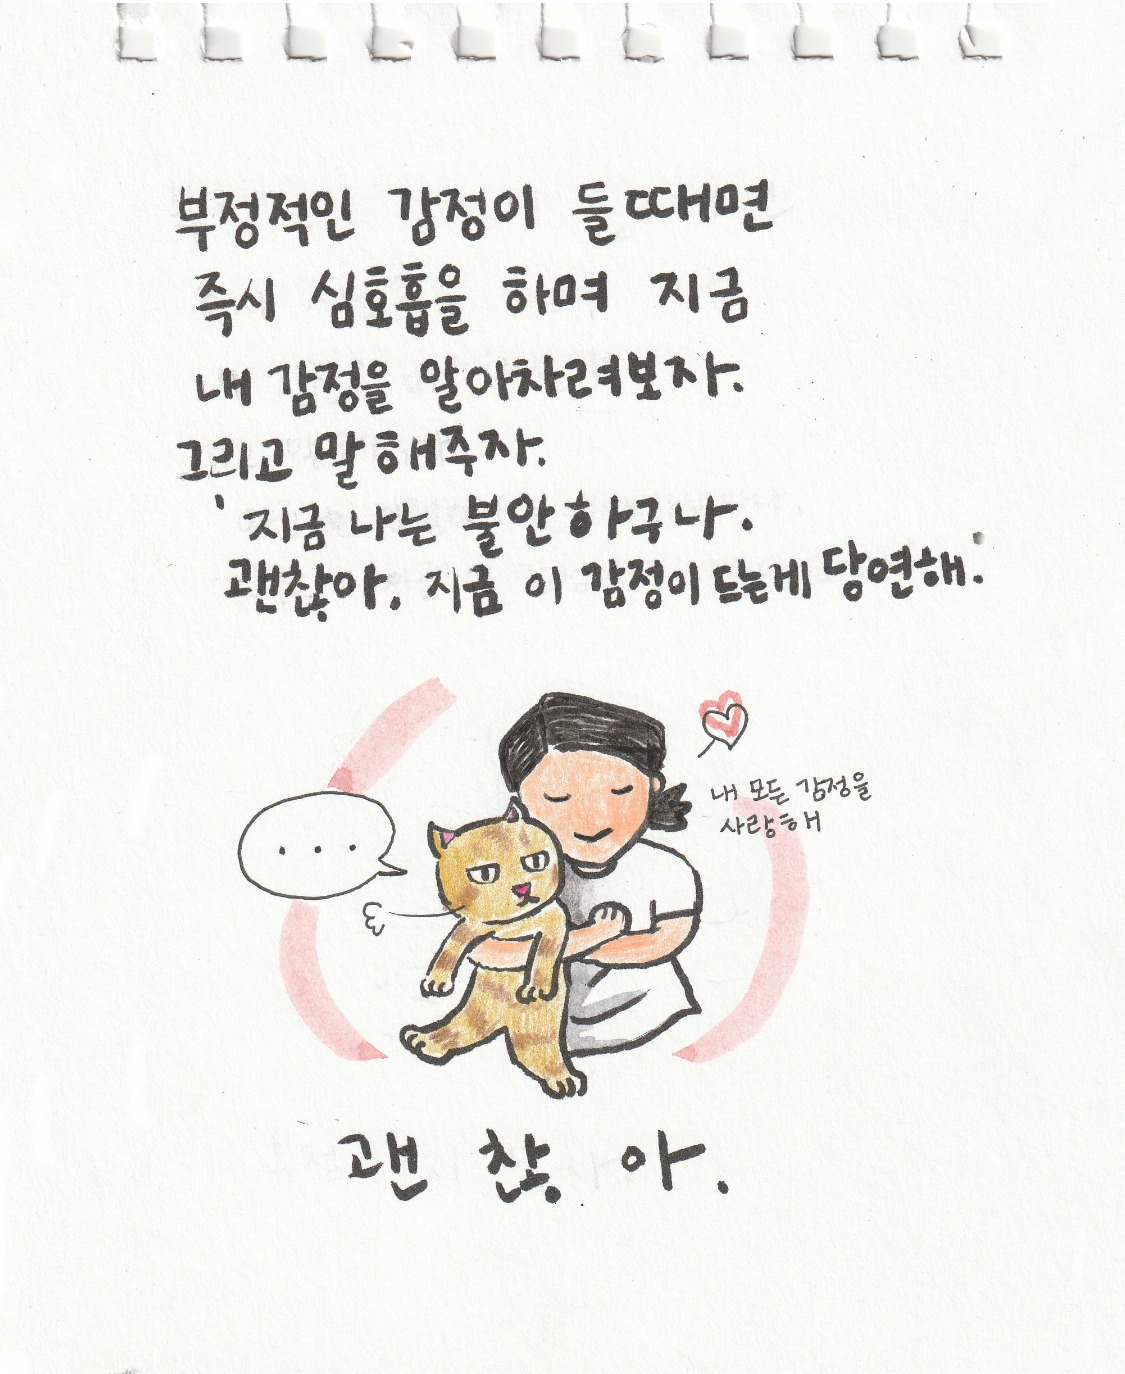 부정적인 감정이 들때면
즉시 심호흡을 하며 지금
내 감정을 알아차려보자.
그리고 말해주자.
'지금 나는 불안하구나.
괜찮아. 지금 이 감정이 드는게 당연해.'
...
내 모든 감정을
사랑해
괜찮아.